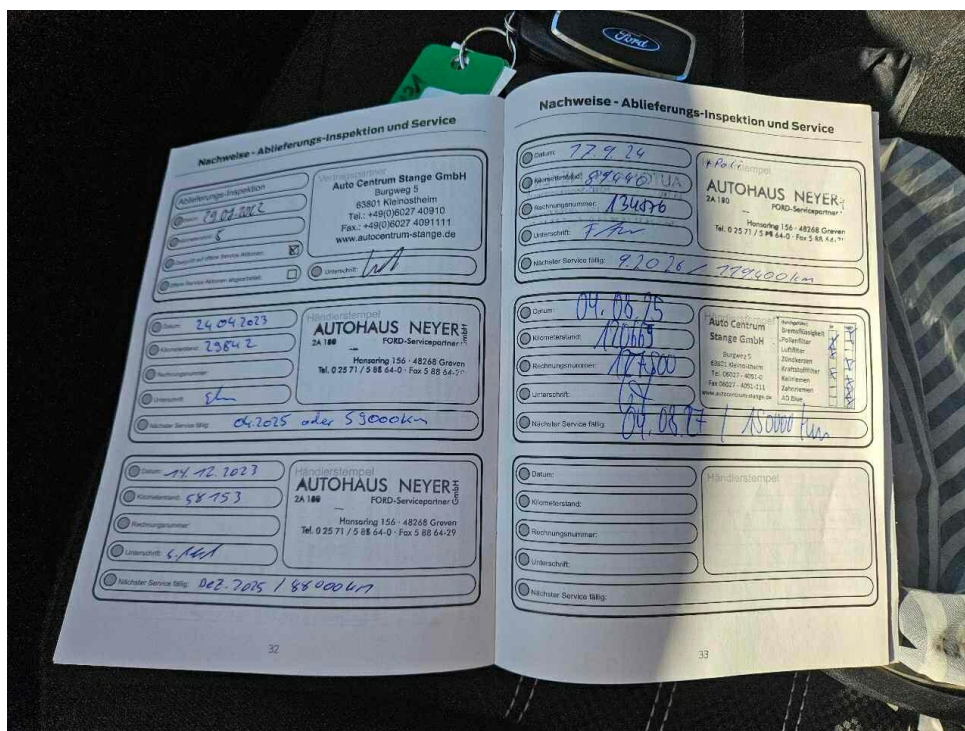 Ford
Nachweise - Ablieferungs-Inspektion und Service
Ablieferungs-Inspektion
5
Unterschrift:
Auto Centrum Stange GmbH
Burgweg 5
63801 Kleinostheim
Tel.: +49(0)6027 40910
Fax.: +49(0)6027 4091111
www.autocentrum-stange.de
Datum: 24.04.2023
Kilometerstand: 29842
Rechnungsnummer:
Unterschrift:
Nächster Service fällig: 04.2025 oder 59000km
AUTOHAUS NEYER GmbH
2A 180
Hansaring 156 · 48268 Greven
Tel. 0 25 71 / 5 88 64-0 · Fax 5 88 64-29
Datum: 14.12.2023
Kilometerstand: 58153
Rechnungsnummer:
Unterschrift:
Nächster Service fällig: Dez. 2025 / 88000km
Händlerstempel
AUTOHAUS NEYER GmbH
2A 180 FORD-Servicepartner
Hansaring 156 · 48268 Greven
Tel. 0 25 71 / 5 88 64-0 · Fax 5 88 64-29
32
Nachweise - Ablieferungs-Inspektion und Service
Datum: 17.9.24
Kilometerstand:
Rechnungsnummer: 134576
Unterschrift:
Nächster Service fällig: 9.2026 / 119400km
AUTOHAUS NEYER
2A 180 FORD-Servicepartner
Hansaring 156 · 48268 Greven
Tel. 0 25 71 / 5 88 64-0 · Fax 5 88 64-
Datum: 04.08.25
Kilometerstand: 120669
Rechnungsnummer: 127800
Unterschrift:
Nächster Service fällig: 04.08.27 / 150000 km
Auto Centrum
Stange GmbH
Burgweg 5
63801 Kleinostheim
Tel. 06027 - 4091-0
Fax 06027 - 4091-111
www.autocentrum-stange.de
Bremsflüssigkeit
Pollenfilter
Luftfilter
Zündkerzen
Kraftstofffilter
Keilriemen
Zahnriemen
AD Blue
Datum:
Kilometerstand:
Rechnungsnummer:
Unterschrift:
Nächster Service fällig:
Händlerstempel
33